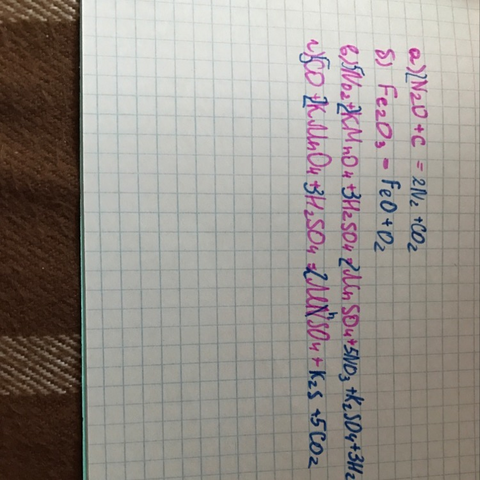 а) 2N2O + C = 2N2 + CO2
б) Fe2O3 = FeO + O2
в) 5NO2 + 2KMnO4 + 3H2SO4 = 2MnSO4 + 5NO3 + K2SO4 + 3H2
г) 5CO + 2KMnO4 + 3H2SO4 = 2MnSO4 + K2S + 5CO2